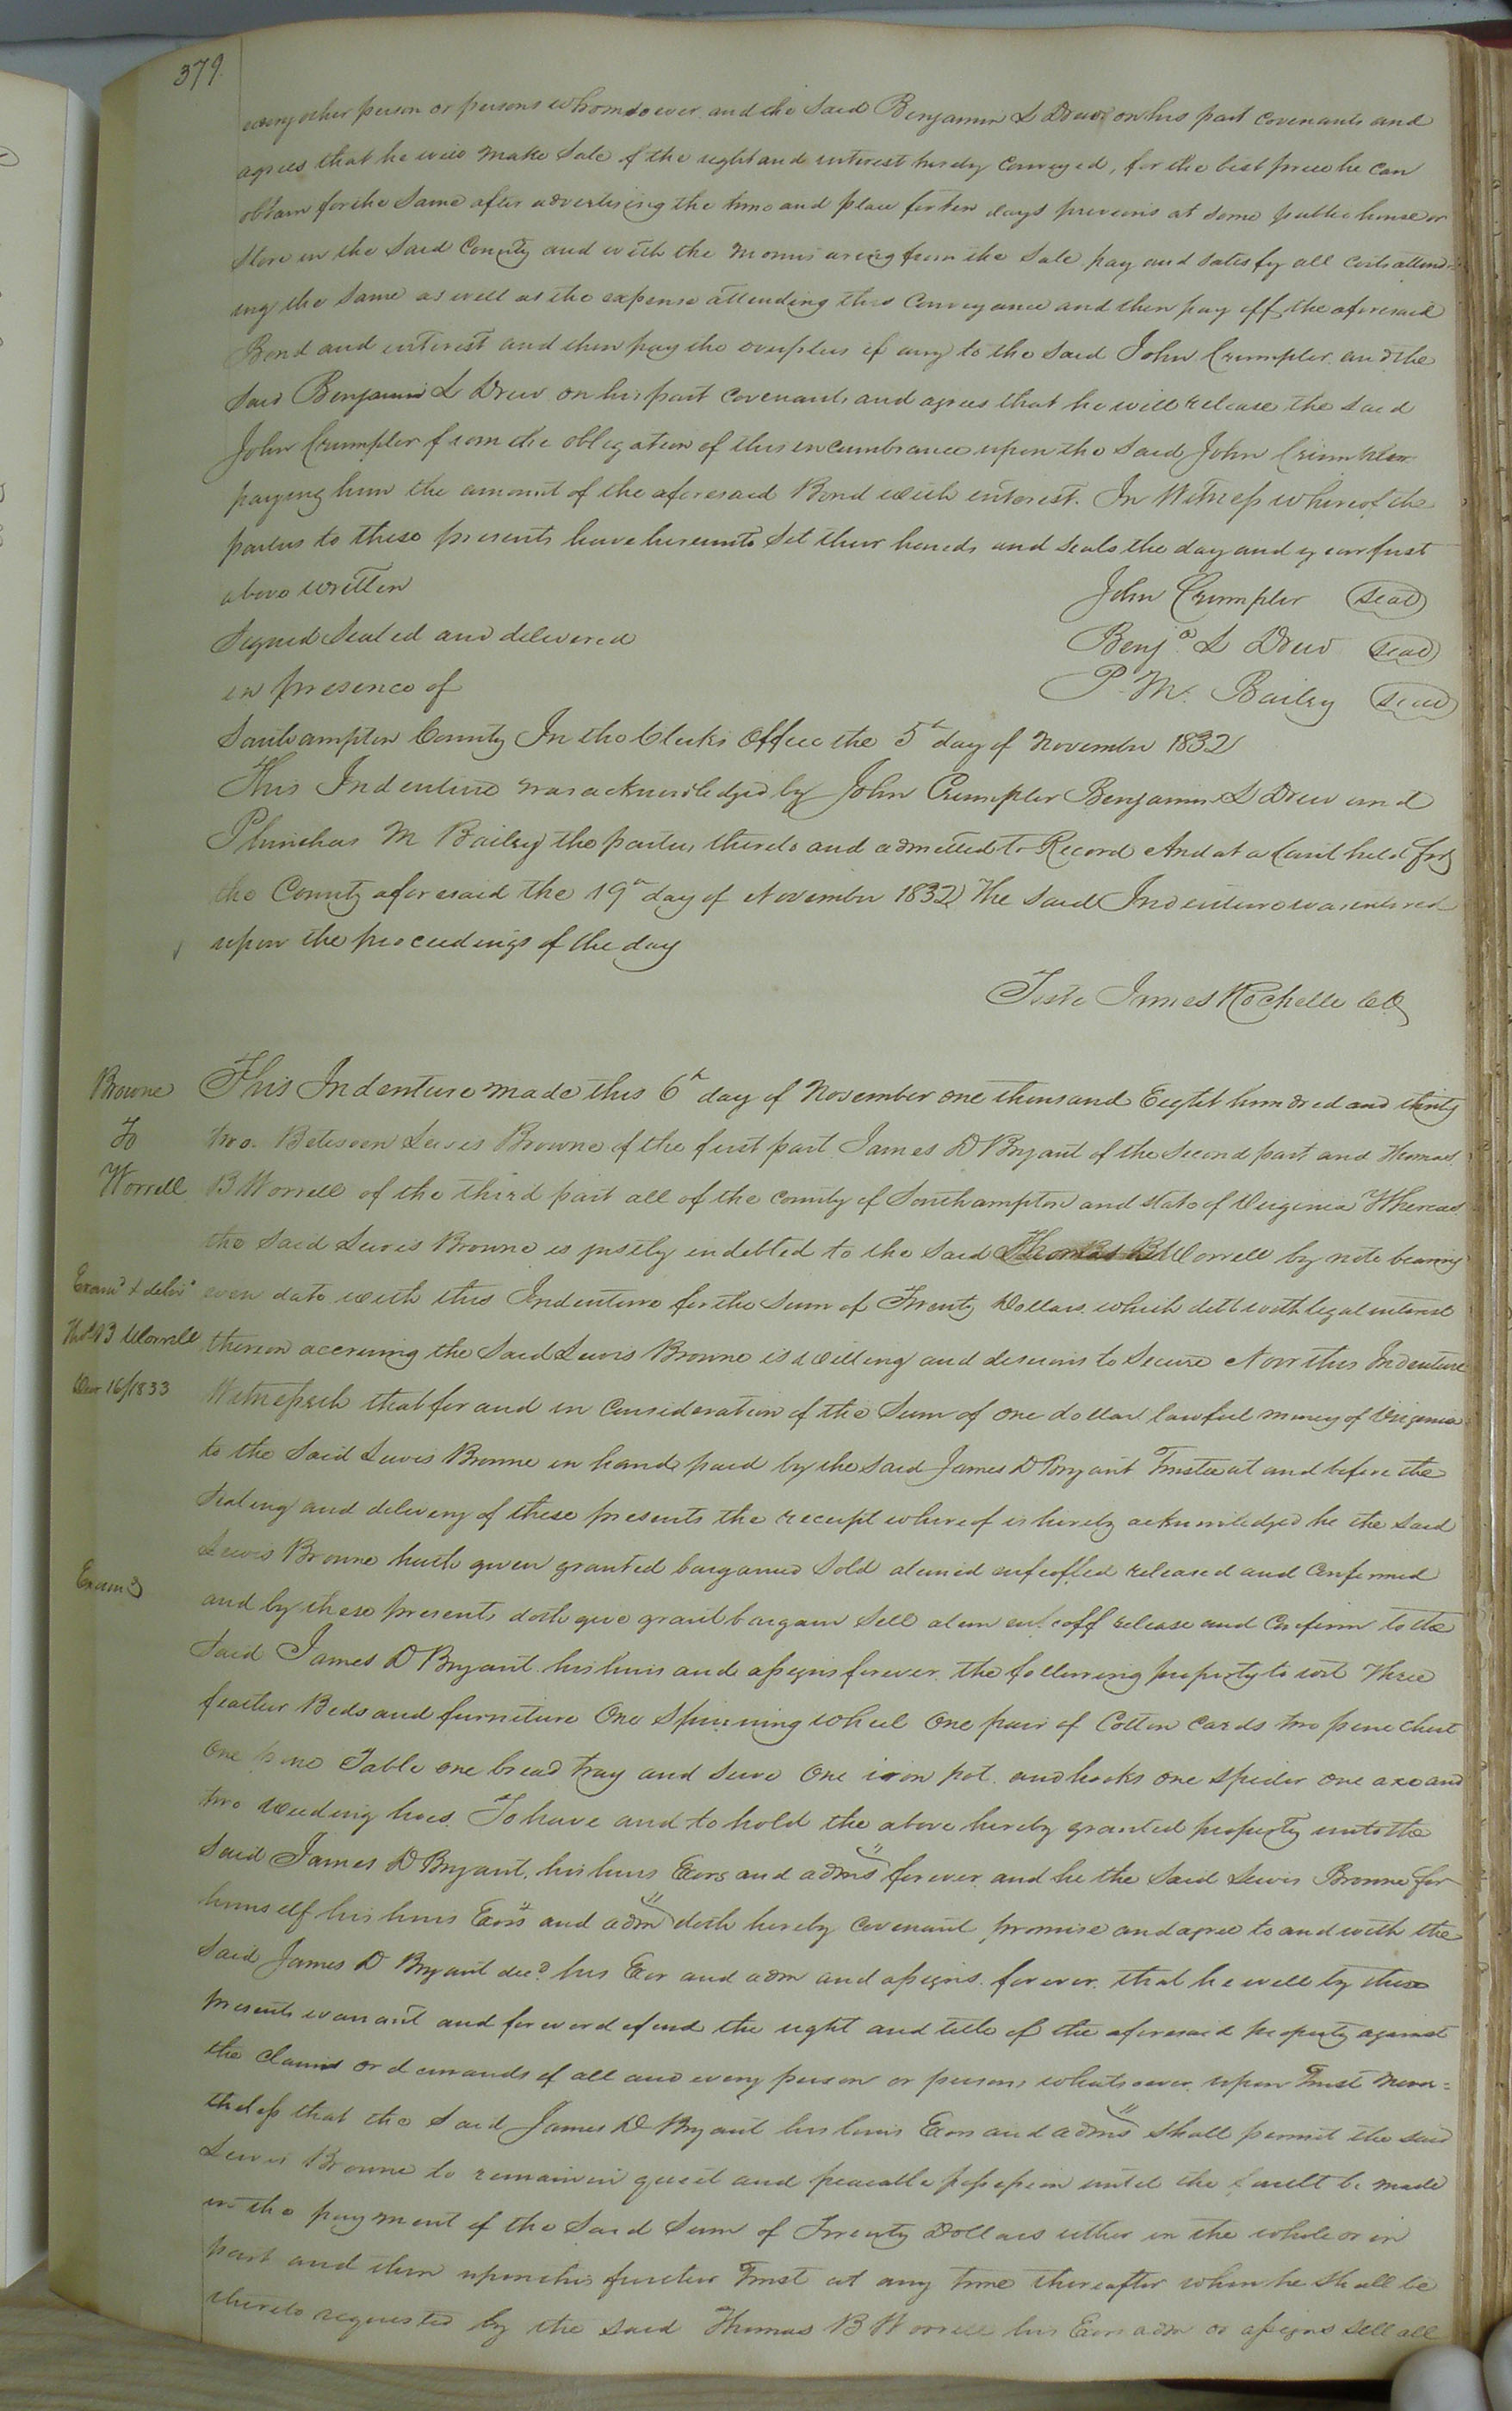 379.
every other person or persons whomsoever and the said Benjamin L Drew on his part covenants and
agrees that he will make Sale of the right and interest hereby conveyed, for the best price he can
obtain for the Same after advertising the time and place for ten days previous at some public house or
Store in the Said County and with the monies arising from the Sale pay and satisfy all costs attend-
ing the Same as well as the expense attending this conveyance and then pay off the aforesaid
Bond and interest and then pay the overplus if any to the said John Crumpler. and the
Said Benjamin L Drew on his part covenants and agrees that he will release the said
John Crumpler from the obligation of this incumbrance upon the Said John Crumpler
paying him the amount of the aforesaid Bond with interest. In Witness whereof the
parties to these presents have hereunto Set their hands and seals the day and year first
above written
John Crumpler Seal
Signed Sealed and delivered
Benja. L Drew Seal
in presence of
P. M. Bailey Seal
Southampton County In the Clerks Office the 5th day of November 1832
This Indenture was acknowledged by John Crumpler Benjamin L Drew and
M Bailey the parties thereto and admitted to Record And at a Court held for
the County aforesaid the 19th day of November 1832 The Said Indenture was entered
upon the proceedings of the day
Teste James Rochelle CC
Browne
To
Worrell
This Indenture made this 6th day of November one thousand Eight hundred and thirty
two. Between Lewis Browne of the first part James D Bryant of the Second part and Thomas
B Worrell of the third part all of the County of Southampton and State of Virginia Whereas
the Said Lewis Browne is justly indebted to the Said Thomas B Worrell by note bearing
Examd & delivd
even date with this Indenture for the Sum of Twenty Dollars which debt with legal interest
Thos B Worrell
thereon accruing the Said Lewis Browne is willing and desirous to Secure Now this Indenture
16/1833
Witnesseth that for and in consideration of the Sum of one dollar lawful money of Virginia
to the Said Lewis Browne in hand paid by the Said James D Bryant Trustee at and before the
Sealing and delivery of these presents the receipt whereof is hereby acknowledged he the Said
Lewis Browne hath given granted bargained Sold aliened enfeoffed released and confirmed
Examd
and by these presents doth give grant bargain Sell alien enfeoff release and confirm to the
Said James D Bryant his heirs and assigns forever. the following property to wit Three
feather Beds and furniture One Spinning wheel One pair of Cotton Cards two pine chest
One pine Table one bread tray and Seive One iron pot and hooks one spider one axe and
two weeding hoes. To have and to hold the above hereby granted property unto the
Said James D Bryant, his heirs Exors and adms forever and he the Said Lewis Browne for
himself his heirs Exors and adm doth hereby covenant promise and agree to and with the
Said James D Bryant decd his Exor and adm and assigns forever. that he will by these
presents warrant and forever defend the right and title of the aforesaid property against
the claims or demands of all and every person or persons whatsoever upon Trust never=
theless that the Said James D Bryant his heirs Exors and adms shall permit the said
Lewis Browne to remain in quiet and peaceable possession until the fault be made
in the payment of the Said Sum of Twenty Dollars either in the whole or in
part and then upon this further Trust at any time thereafter when he shall be
thereto requested by the said Thomas B Worrell his Exors adm or assigns sell all